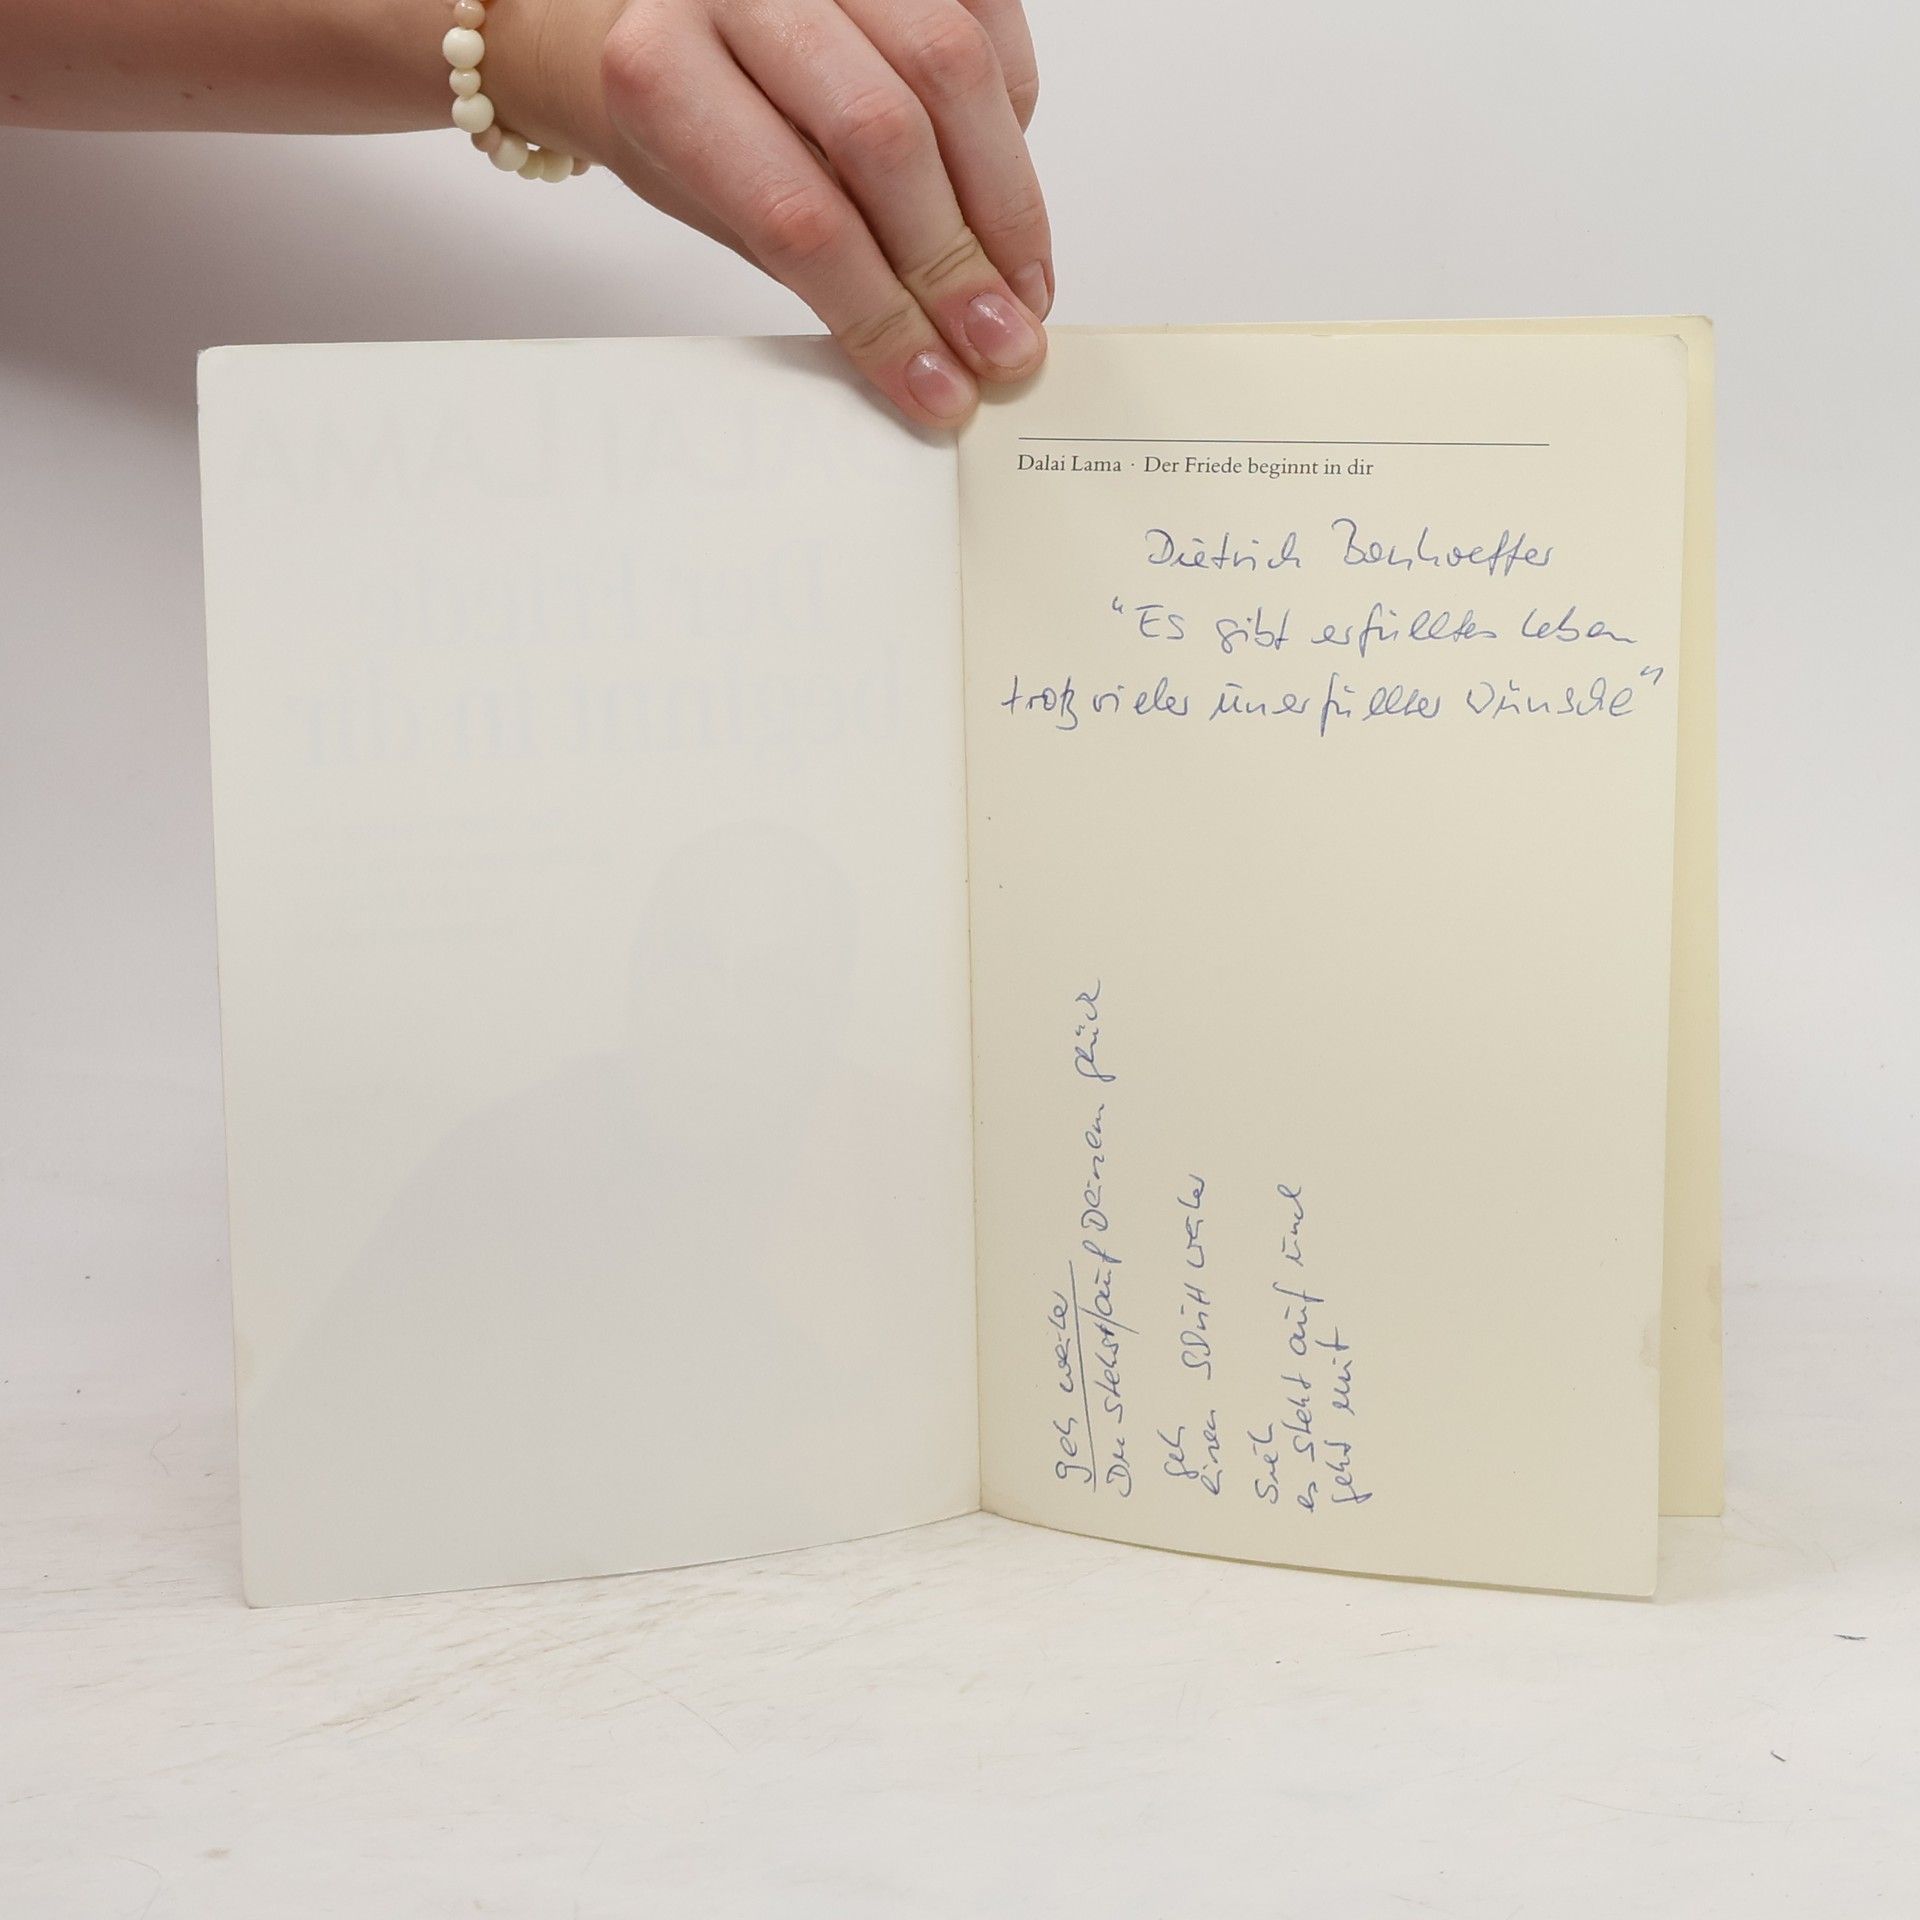 Dalai Lama · Der Friede beginnt in dir
Dietrich Bonhoeffer
"Es gibt erfülltes Leben
trotz vieler unerfüllter Wünsche"
geh weiter
Du stehst auf Deinem glück
geh
einen Schritt weiter
Sieh
es steht auf und
geht mit